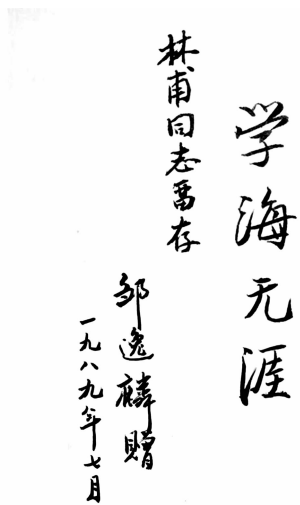 学海无涯
林甫同志留存
邹逸麟赠
一九八九年七月